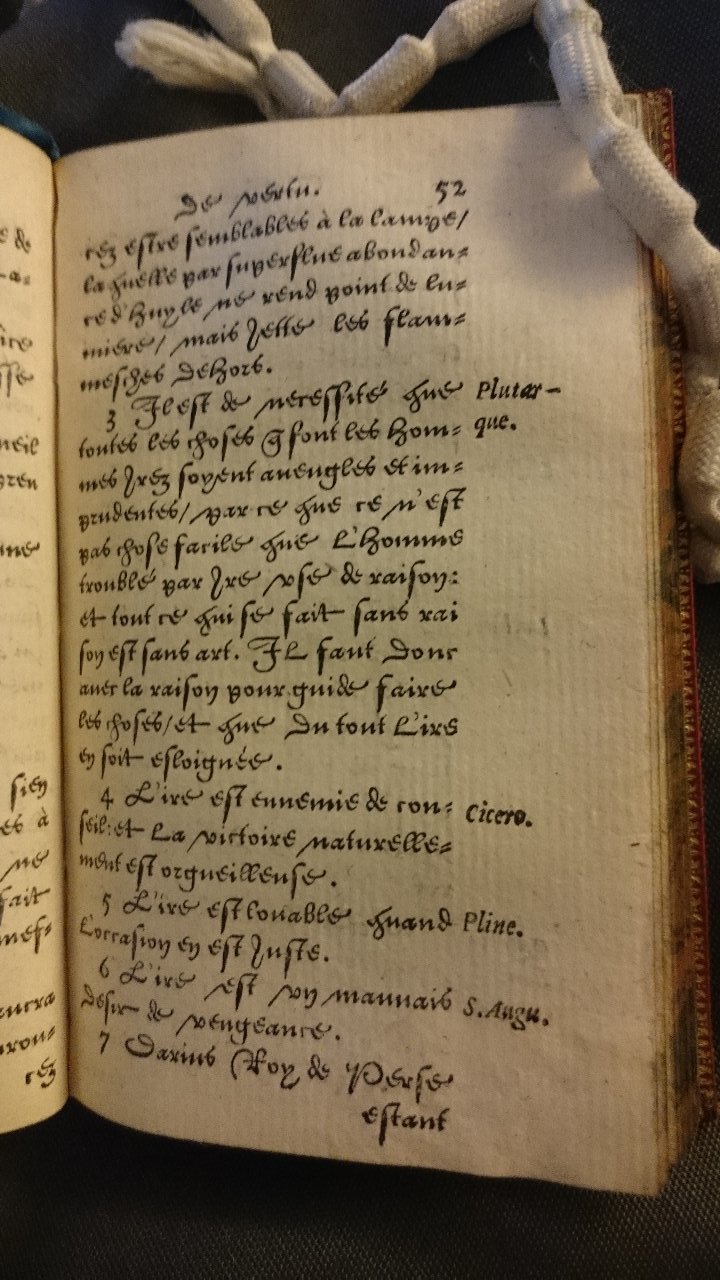 e de
-a-
ice
sse
neil
pren
nne
sien
es à
ne
fait
mef-
ancra
uron-
cez
De vertu. 52
cez estre semblables à la lampe/
laquelle par superflue abondan-
ce d'huyle ne rend point de lu-
miere/ mais Jette les flam-
mesches dehors.
3 Il est de necessité que
Plutar-
toutes les choses q̃ font les hom-
que.
mes Jrez soyent aueugles et im-
prudentes/ par ce que ce n'est
pas chose facile que L'homme
troublé par Jre vse de raison:
et tout ce qui se fait sans rai
son est sans art. IL faut Donc
auec la raison pour guide faire
les choses/et que Du tout L'ire
en soit esloignée.
4 L'ire est ennemie de con-
Cicero.
seil: et La victoire naturelle-
ment est orgueilleuse.
5 L'ire est louable quand
Pline.
L'occasion en est Juste.
6 L'ire est vn mauuais
S. Augu.
Desir de vengeance.
7 Darius Roy de Perse
estant